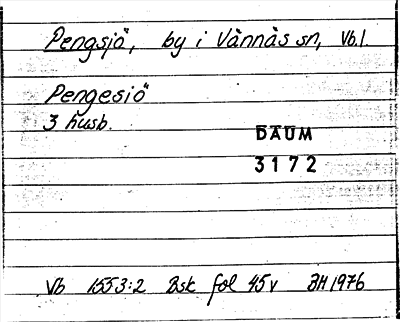 Pengsjö, by i Vännäs sn, Vb.l.
Pengesiö
3 husb.
DAUM
3172
Vb 1553:2 Bsk fol 45v BH 1976